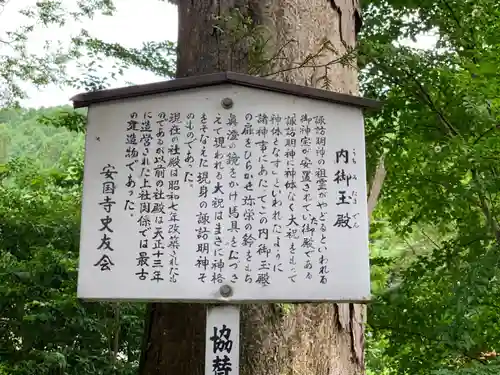 内御玉殿
うちみたまでん
諏訪明神の祖霊がやどるといわれる
御神宝が安置されている御殿である
諏訪明神に神体なく大祝をもって
神体をなす」といわれたように
諸神事にあたってこの内御玉殿
の扉をひらかせ弥栄の鈴をもち
眞澄の鏡をかけ馬具をたづさ
えて現われる大祝はまさに神格
をそなえた現身の諏訪明神そ
のものであった。
現在の社殿は昭和七年改築されたも
のであるが以前の社殿は天正十三年
に造営された上社関係では最古
の建造物であった。
安国寺史友会
協賛